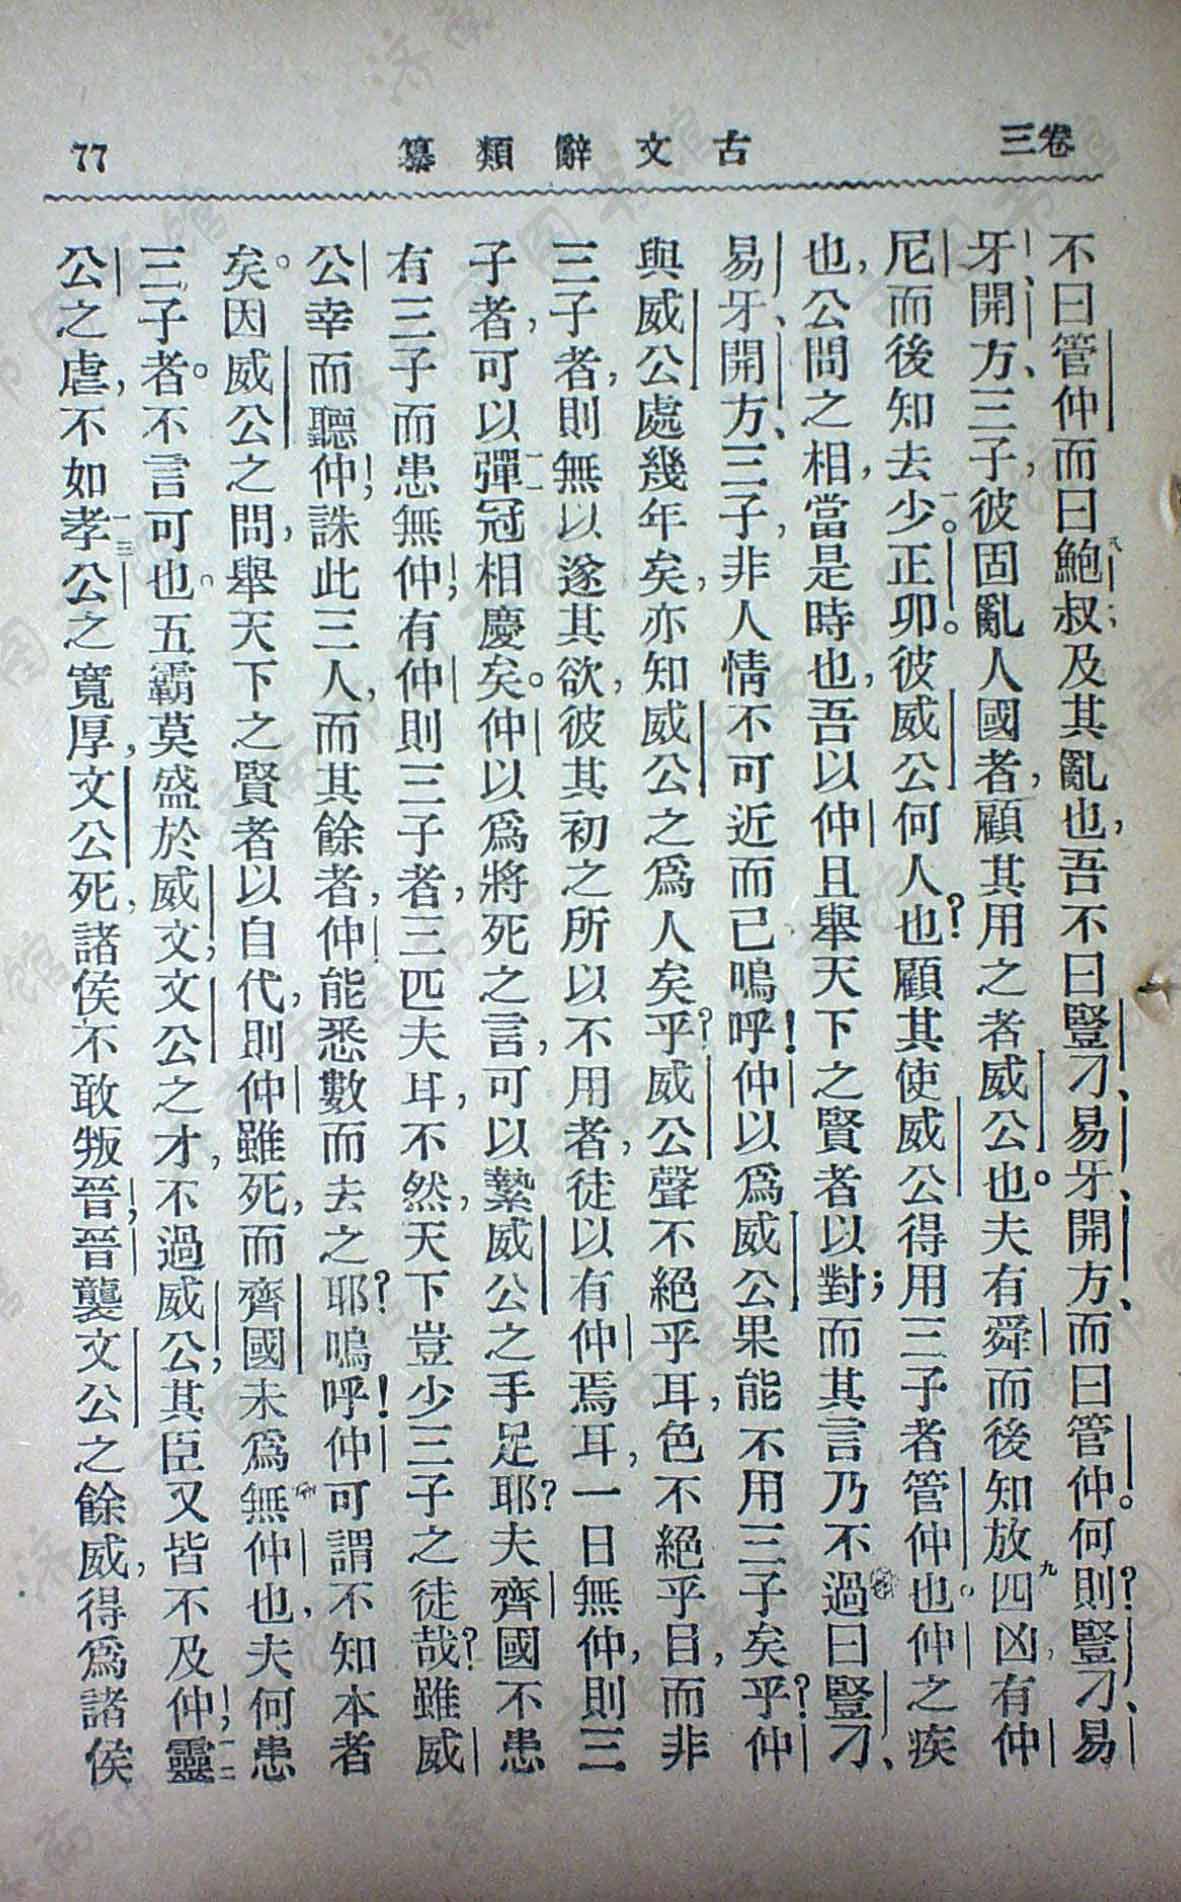 卷三
古文辭類纂
77
不曰管仲而曰鮑叔八；及其亂也，吾不曰豎刁、易牙、開方、而曰管仲。何則？豎刁、易
牙、開方、三子，彼固亂人國者，顧其用之者威公也。夫有舜而後知放四九凶，有仲
尼而後知去少一。正卯。彼威公何人也？顧其使威公得用三子者管仲也。仲之疾
也，公問之相，當是時也，吾以仲且舉天下之賢者以對；而其言乃不過曰豎刁、
易牙、開方、三子，非人情不可近而已嗚呼！仲以爲威公果能不用三子矣乎？仲
與威公處幾年矣，亦知威公之爲人矣乎？威公聲不絕乎耳，色不絕乎目，而非
三子者，則無以遂其欲，彼其初之所以不用者，徒以有仲焉耳，一日無仲，則三
子者，可以彈一一冠相慶矣。仲以爲將死之言，可以縶威公之手足耶？夫齊國不患
有三子而患無仲；有仲則三子者，三匹夫耳，不然，天下豈少三子之徒哉？雖威
公幸而聽仲！誅此三人，而其餘者，仲能悉數而去之耶？嗚呼！仲可謂不知本者
矣。因威公之問，舉天下之賢者以自代，則仲雖死，而齊國未爲無仲也，夫何患
三子者。不言可也。五霸莫盛於威文，文公之才，不過威公，其臣又皆不及仲！靈一二
公之虐，不如孝一三公之寬厚，文公死，諸侯不敢叛晉，晉襲文公之餘威，得爲諸侯